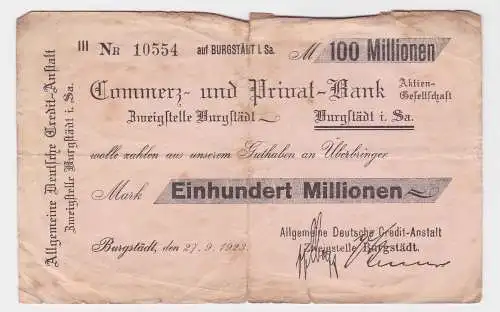 Allgemeine Deutsche Credit-Anstalt
Zweigstelle Burgstädt i. Sa.
III NR 10554 auf BURGSTÄDT i. Sa. M 100 Millionen
Commerz- und Privat-Bank Aktien-
Gesellschaft
Zweigstelle Burgstädt Burgstädt i. Sa.
wolle zahlen aus unserem Guthaben an Überbringer
Mark Einhundert Millionen
Allgemeine Deutsche Credit-Anstalt
Zweigstelle Burgstädt.
Burgstädt, den 27. 9. 1923.